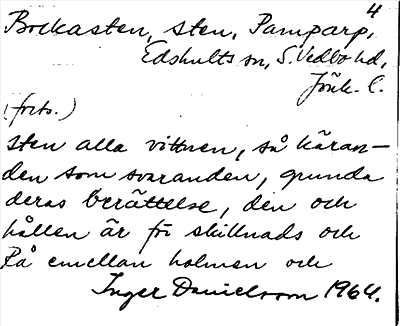 4
Bockasten, sten, Pamparp,
Edshults sn, S. Vedbo hd,
Jönk. l.
(forts.)
sten alla vittnen, så käran-
den som svaranden, grunda
deras berättelse, den och
hållen är för skillnads och
Rå emellan holmen och
Inger Danielsson 1964.